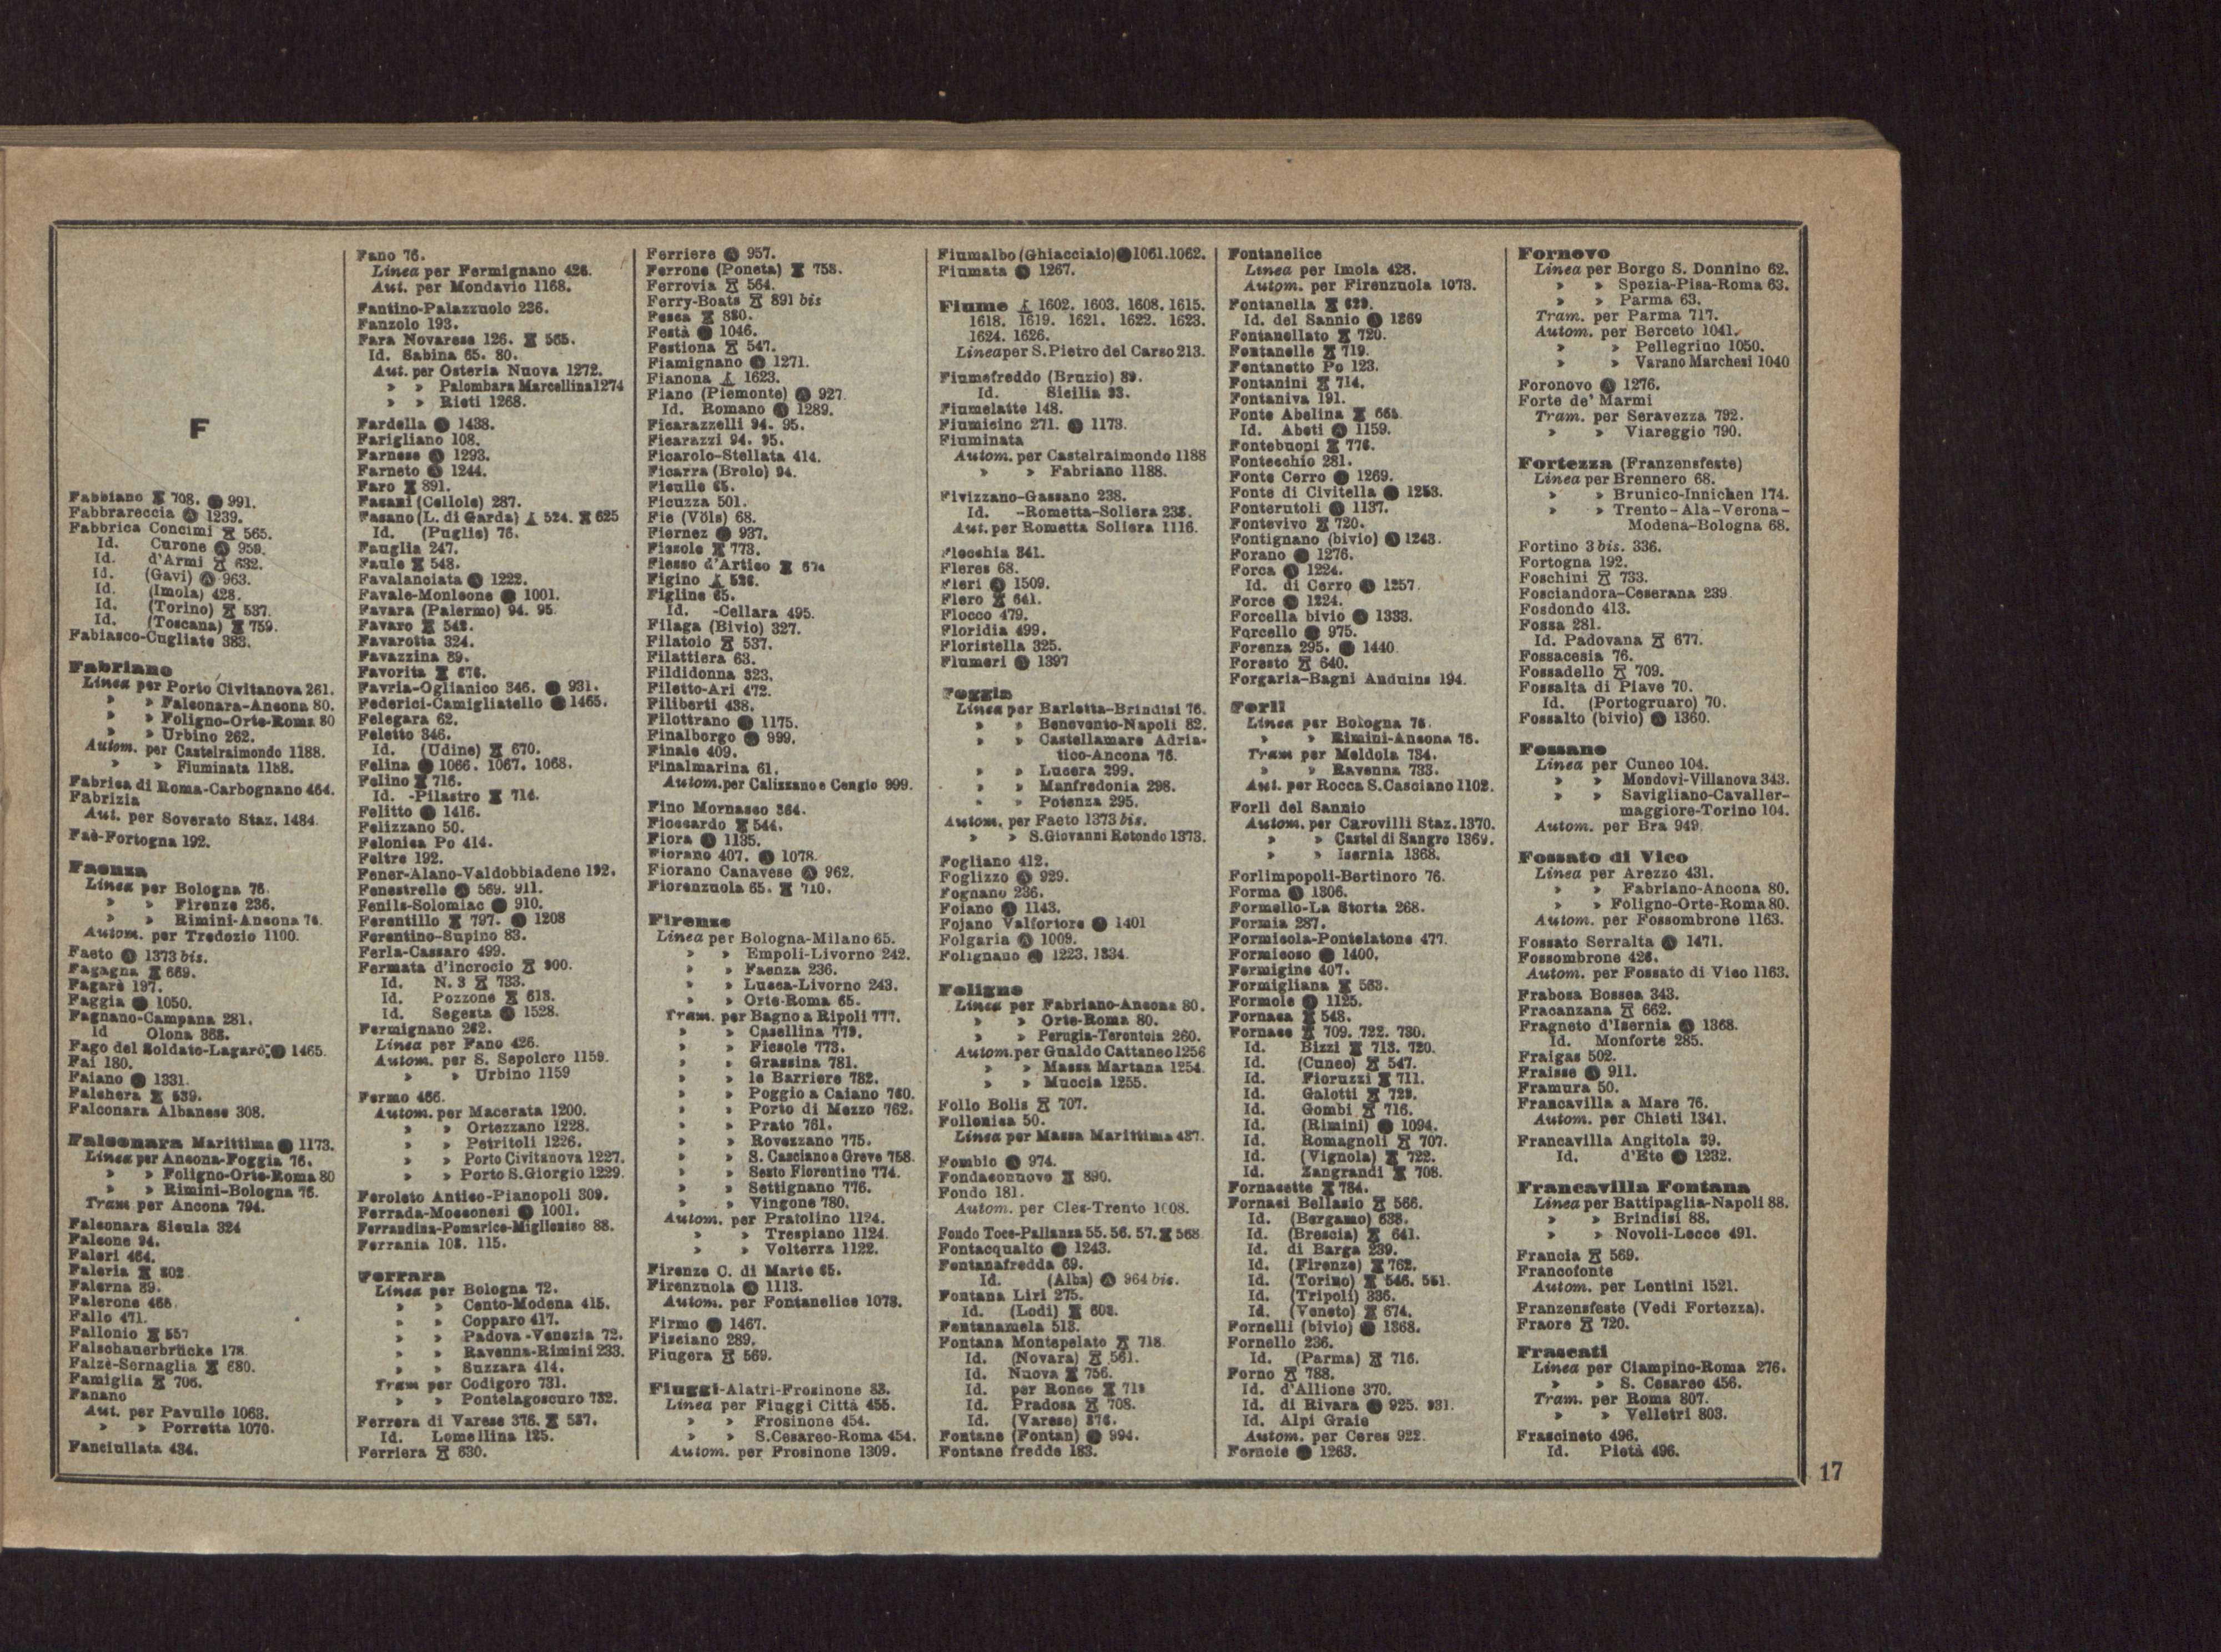 F
Fabbiano 708. 991.
Fabbrareccia 1239.
Fabbrica Concimi 565.
Id. Curone 959.
Id. d'Armi 632.
Id. (Gavi) 963.
Id. (Imola) 428.
Id. (Torino) 537.
Id. (Toscana) 759.
Fabiasco-Cugliate 383.
Fabriano
Linea per Porto Civitanova 261.
» » Falconara-Ancona 80.
» » Foligno-Orte-Roma 80
» » Urbino 262.
Autom. per Castelraimondo 1188.
» » Fiuminata 1188.
Fabrica di Roma-Carbognano 464.
Fabrizia
Aut. per Soverato Staz. 1484.
Faè-Fortogna 192.
Faenza
Linea per Bologna 76.
» » Firenze 236.
» » Rimini-Ancona 76.
Autom. per Tredozio 1100.
Faeto 1373 bis.
Fagagna 669.
Fagarè 197.
Faggia 1050.
Fagnano-Campana 281.
Id Olona 368.
Fago del Soldato-Lagarò, 1465.
Fai 180.
Faiano 1331.
Falchera 539.
Falconara Albanese 308.
Falconara Marittima 1173.
Linea per Ancona-Foggia 76.
» » Foligno-Orte-Roma 80
» » Rimini-Bologna 76.
Tram per Ancona 794.
Falconara Sicula 324
Falcone 94.
Faleri 464.
Faleria 802
Falerna 89.
Falerone 466
Fallo 471.
Fallonio 557
Falschauerbrücke 178
Falzè-Sernaglia 680.
Famiglia 706.
Fanano
Aut. per Pavullo 1063.
» » Porretta 1070.
Fanciullata 434.
Fano 76.
Linea per Fermignano 426.
Aut. per Mondavio 1168.
Fantino-Palazzuolo 236.
Fanzolo 193.
Fara Novarese 126. 565.
Id. Sabina 65. 80.
Aut. per Osteria Nuova 1272.
» » Palombara Marcellina 1274
» » Rieti 1268.
Fardella 1438.
Farigliano 108.
Farnese 1293.
Farneto 1244.
Faro 891.
Fasani (Cellole) 287.
Fasano (L. di Garda) 524. 625
Id. (Puglie) 76.
Fauglia 247.
Faule 548.
Favalanciata 1222.
Favale-Monleone 1001.
Favara (Palermo) 94. 95
Favaro 542.
Favarotta 324.
Favazzina 89.
Favorita 676.
Favria-Oglianico 346. 931.
Federici-Camigliatello 1465.
Felegara 62.
Feletto 346.
Id. (Udine) 670.
Felina 1066. 1067. 1068.
Felino 716.
Id. -Pilastro 714.
Felitto 1416.
Felizzano 50.
Felonica Po 414.
Feltre 192.
Fener-Alano-Valdobbiadene 192.
Fenestrelle 569. 911.
Fenils-Solomiac 910.
Ferentillo 797. 1208
Ferentino-Supino 83.
Ferla-Cassaro 499.
Fermata d'incrocio 800.
Id. N. 3 733.
Id. Pozzone 613.
Id. Segesta 1528.
Fermignano 262.
Linea per Fano 426.
Autom. per S. Sepolcro 1159.
» » Urbino 1159
Fermo 466.
Autom. per Macerata 1200.
» » Ortezzano 1228.
» » Petritoli 1226.
» » Porto Civitanova 1227.
» » Porto S. Giorgio 1229.
Feroleto Antico-Pianopoli 309.
Ferrada-Moconesi 1001.
Ferrandina-Pomarico-Miglionico 88.
Ferrania 108. 115.
Ferrara
Linea per Bologna 72.
» » Cento-Modena 415.
» » Copparo 417.
» » Padova-Venezia 72.
» » Ravenna-Rimini 233.
» » Suzzara 414.
Tram per Codigoro 731.
» » Pontelagoscuro 732.
Ferrera di Varese 376. 587.
Id. Lomellina 125.
Ferriera 630.
Ferriere 957.
Ferrone (Poneta) 758.
Ferrovia 564.
Ferry-Boats 891 bis
Fesca 880.
Festà 1046.
Festiona 547.
Fiamignano 1271.
Fianona 1623.
Fiano (Piemonte) 927
Id. Romano 1289.
Ficarazzelli 94. 95.
Ficarazzi 94. 95.
Ficarolo-Stellata 414.
Ficarra (Brolo) 94.
Ficulle 65.
Ficuzza 501.
Fie (Völs) 68.
Fiernez 937.
Fiesole 773.
Fiesso d'Artico 674
Figino 526.
Figline 65.
Id. -Cellara 495.
Filaga (Bivio) 327.
Filatoio 537.
Filattiera 63.
Fildidonna 323.
Filetto-Ari 472.
Filiberti 438.
Filottrano 1175.
Finalborgo 999.
Finale 409.
Finalmarina 61.
Autom. per Calizzano e Cengio 999.
Fino Mornasco 364.
Fioccardo 544.
Fiora 1135.
Fiorano 407. 1078.
Fiorano Canavese 962.
Fiorenzuola 65. 710.
Firenze
Linea per Bologna-Milano 65.
» » Empoli-Livorno 242.
» » Faenza 236.
» » Lucca-Livorno 243.
» » Orte-Roma 65.
Tram. per Bagno a Ripoli 777.
» » Casellina 779.
» » Fiesole 773.
» » Grassina 781.
» » le Barriere 782.
» » Poggio a Caiano 760.
» » Porto di Mezzo 762.
» » Prato 761.
» » Rovezzano 775.
» » S. Casciano e Greve 758.
» » Sesto Fiorentino 774.
» » Settignano 776.
» » Vingone 780.
Autom. per Pratolino 1124.
» » Trespiano 1124.
» » Volterra 1122.
Firenze C. di Marte 65.
Firenzuola 1113.
Autom. per Fontanelice 1073.
Firmo 1467.
Fisciano 289.
Fiugera 569.
Fiuggi-Alatri-Frosinone 83.
Linea per Fiuggi Città 455.
» » Frosinone 454.
» » S. Cesareo-Roma 454.
Autom. per Frosinone 1309.
Fiumalbo (Ghiacciaio) 1061. 1062.
Fiumata 1267.
Fiume 1602. 1603. 1608. 1615.
1618. 1619. 1621. 1622. 1623.
1624. 1626.
Linea per S. Pietro del Carso 213.
Fiumefreddo (Bruzio) 89.
Id. Sicilia 93.
Fiumelatte 148.
Fiumicino 271. 1173.
Fiuminata
Autom. per Castelraimondo 1188
» » Fabriano 1188.
Fivizzano-Gassano 238.
Id. -Rometta-Soliera 238.
Aut. per Rometta Soliera 1116.
Flecchia 341.
Fleres 68.
Fleri 1509.
Flero 641.
Flocco 479.
Floridia 499.
Floristella 325.
Flumeri 1397
Foggia
Linea per Barletta-Brindisi 76.
» » Benevento-Napoli 82.
» » Castellamare Adria-
tico-Ancona 76.
» » Lucera 299.
» » Manfredonia 298.
» » Potenza 295.
Autom. per Faeto 1373 bis.
» » S. Giovanni Rotondo 1373.
Fogliano 412.
Foglizzo 929.
Fognano 236.
Foiano 1143.
Fojano Valfortore 1401
Folgaria 1008.
Folignano 1223. 1334.
Foligno
Linea per Fabriano-Ancona 80.
» » Orte-Roma 80.
» » Perugia-Terontola 260.
Autom. per Gualdo Cattaneo 1256
» » Massa Martana 1254.
» » Muccia 1255.
Follo Bolis 707.
Follonica 50.
Linea per Massa Marittima 437.
Fombio 974.
Fondaconuovo 890.
Fondo 181.
Autom. per Cles-Trento 1008.
Fondo Toce-Pallanza 55. 56. 57. 568
Fontacqualto 1243.
Fontanafredda 69.
Id. (Alba) 964 bis.
Fontana Liri 275.
Id. (Lodi) 608.
Fontanamela 513.
Fontana Montepelato 718
Id. (Novara) 561.
Id. Nuova 756.
Id. per Ronco 718
Id. Pradosa 708.
Id. (Varese) 376.
Fontane (Fontan) 994.
Fontane fredde 183.
Fontanelice
Linea per Imola 428.
Autom. per Firenzuola 1073.
Fontanella 629.
Id. del Sannio 1369
Fontanellato 720.
Fontanelle 719.
Fontanetto Po 123.
Fontanini 714.
Fontaniva 191.
Fonte Abelina 665
Id. Abeti 1159.
Fontebuoni 776.
Fontecchio 281.
Fonte Cerro 1269.
Fonte di Civitella 1253.
Fonterutoli 1137.
Fontevivo 720.
Fontignano (bivio) 1243.
Forano 1276.
Forca 1224.
Id. di Cerro 1257
Force 1224.
Forcella bivio 1333.
Forcello 975.
Forenza 295. 1440
Foresto 640.
Forgaria-Bagni Anduins 194.
Forlì
Linea per Bologna 76.
» » Rimini-Ancona 76.
Tram per Meldola 734.
» » Ravenna 733.
Aut. per Rocca S. Casciano 1102.
Forlì del Sannio
Autom. per Carovilli Staz. 1370.
» » Castel di Sangro 1369.
» » Isernia 1368.
Forlimpopoli-Bertinoro 76.
Forma 1306.
Formello-La Storta 268.
Formia 287.
Formicola-Pontelatone 477.
Formicoso 1400.
Formigine 407.
Formigliana 563.
Formole 1125.
Fornaca 548.
Fornace 709. 722. 730.
Id. Bizzi 713. 720.
Id. (Cuneo) 547.
Id. Fioruzzi 711.
Id. Galotti 729.
Id. Gombi 716.
Id. (Rimini) 1094.
Id. Romagnoli 707.
Id. (Vignola) 722.
Id. Zangrandi 708.
Fornacette 784.
Fornaci Bellasio 566.
Id. (Bergamo) 638.
Id. (Brescia) 641.
Id. di Barga 239.
Id. (Firenze) 762.
Id. (Torino) 546. 551.
Id. (Tripoli) 336.
Id. (Veneto) 674.
Fornelli (bivio) 1368.
Fornello 236.
Id. (Parma) 716.
Forno 788.
Id. d'Allione 370.
Id. di Rivara 925. 931.
Id. Alpi Graie
Autom. per Ceres 922.
Fornole 1263.
Fornovo
Linea per Borgo S. Donnino 62.
» » Spezia-Pisa-Roma 63.
» » Parma 63.
Tram. per Parma 717.
Autom. per Berceto 1041.
» » Pellegrino 1050.
» » Varano Marchesi 1040
Foronovo 1276.
Forte de' Marmi
Tram. per Seravezza 792.
» » Viareggio 790.
Fortezza (Franzensfeste)
Linea per Brennero 68.
» » Brunico-Innichen 174.
» » Trento-Ala-Verona-
Modena-Bologna 68.
Fortino 3 bis. 336.
Fortogna 192.
Foschini 733.
Fosciandora-Ceserana 239
Fosdondo 413.
Fossa 281.
Id. Padovana 677.
Fossacesia 76.
Fossadello 709.
Fossalta di Piave 70.
Id. (Portogruaro) 70.
Fossalto (bivio) 1360.
Fossano
Linea per Cuneo 104.
» » Mondovì-Villanova 343.
» » Savigliano-Cavaller-
maggiore-Torino 104.
Autom. per Bra 949
Fossato di Vico
Linea per Arezzo 431.
» » Fabriano-Ancona 80.
» » Foligno-Orte-Roma 80.
Autom. per Fossombrone 1163.
Fossato Serralta 1471.
Fossombrone 426.
Autom. per Fossato di Vico 1163.
Frabosa Bossea 343.
Fracanzana 662.
Fragneto d'Isernia 1368.
Id. Monforte 285.
Fraigas 502.
Fraisse 911.
Framura 50.
Francavilla a Mare 76.
Autom. per Chieti 1341.
Francavilla Angitola 89.
Id. d'Ete 1232.
Francavilla Fontana
Linea per Battipaglia-Napoli 88.
» » Brindisi 88.
» » Novoli-Lecce 491.
Francia 569.
Francofonte
Autom. per Lentini 1521.
Franzensfeste (Vedi Fortezza).
Fraore 720.
Frascati
Linea per Ciampino-Roma 276.
» » S. Cesareo 456.
Tram. per Roma 807.
» » Velletri 803.
Frascineto 496.
Id. Pietà 496.
17